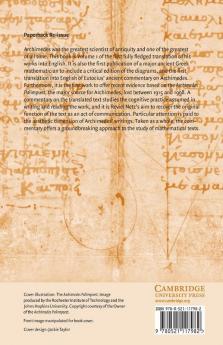 Paperback Re-issue
Archimedes was the greatest scientist of antiquity and one of the greatest
of all time. This book is Volume I of the first fully fledged translation of his
works into English. It is also the first publication of a major ancient Greek
mathematician to include a critical edition of the diagrams, and the first
translation into English of Eutocius' ancient commentary on Archimedes.
Furthermore, it is the first work to offer recent evidence based on the Archimedes
Palimpsest, the major source for Archimedes, lost between 1915 and 1998. A
commentary on the translated text studies the cognitive practice assumed in
writing and reading the work, and it is Reviel Netz's aim to recover the original
function of the text as an act of communication. Particular attention is paid to
the aesthetic dimension of Archimedes' writings. Taken as a whole, the com-
mentary offers a groundbreaking approach to the study of mathematical texts.
Cover illustration: The Archimedes Palimpsest. Image
produced by the Rochester Institute of Technology and the
Johns Hopkins University. Copyright courtesy of the Owner
of the Archimedes Palimpsest.
Front image manipulated for book cover.
Cover design: Jackie Taylor
CAMBRIDGE
UNIVERSITY PRESS
www.cambridge.org
ISBN 978-0-521-11798-2
9 780521 117982